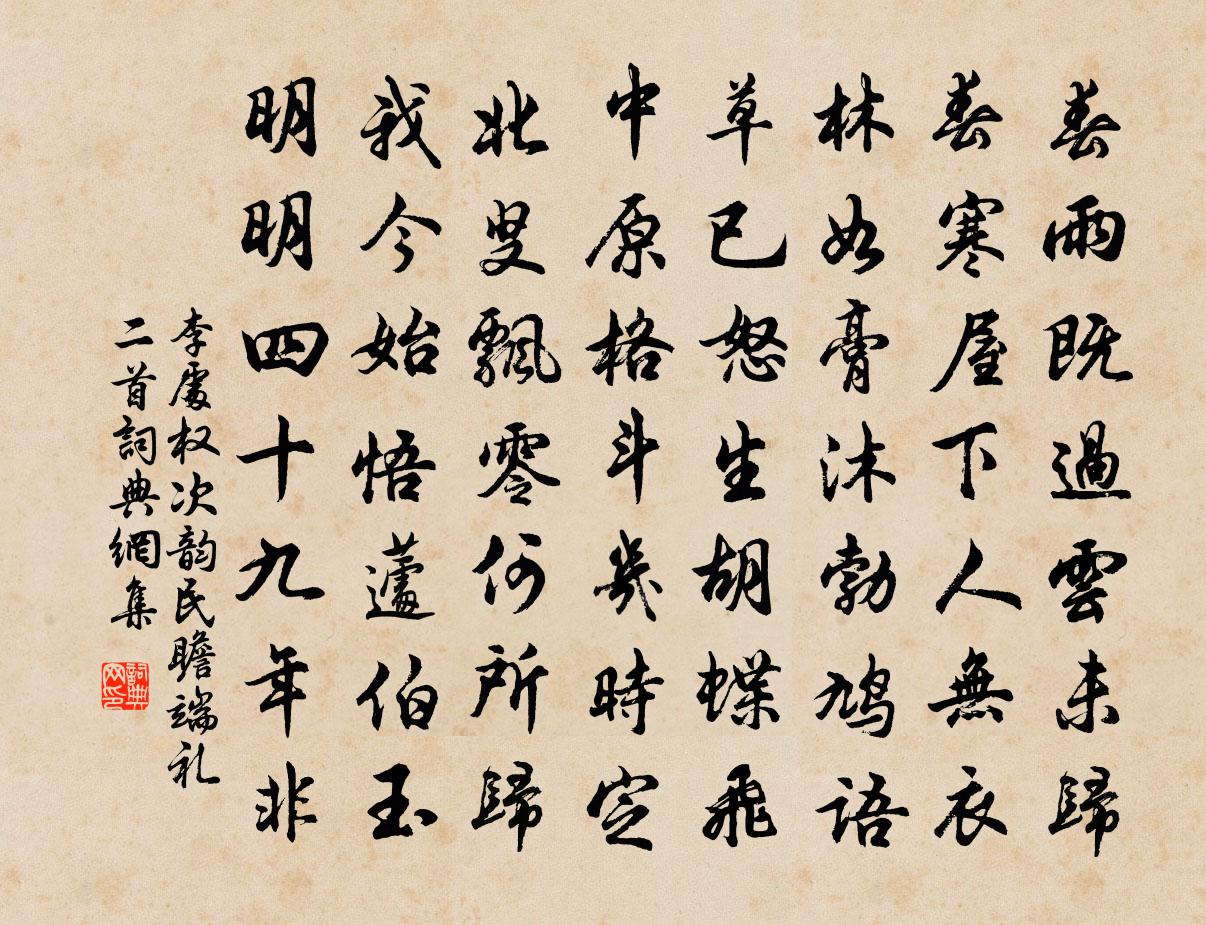 春雨既過雲未歸
春寒屋下人無衣
林如膏沐勃鳩語
草已怒生胡蝶飛
中原格斗幾時定
北叟飄零何所歸
我今始悟蘧伯玉
明明四十九年非
李處权次韵民瞻端礼
二首詞典網集
詞典
网印